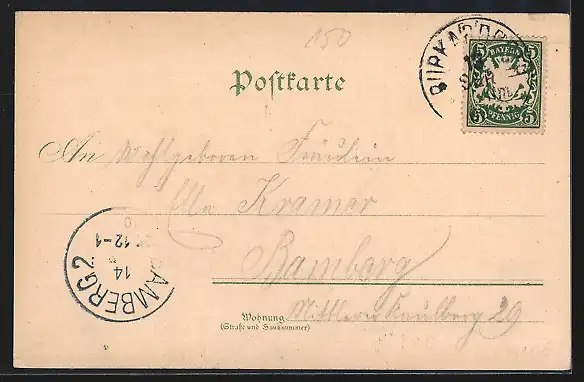 150
BAYERN
5 5
PFENNIG
5 5
Postkarte
An Wohlgeboren Fräulein
Ella Kramer
Bamberg
Mittlerer Kaulberg 29
Wohnung
(Straße und Hausnummer)
BAMBERG 2
14
12-1